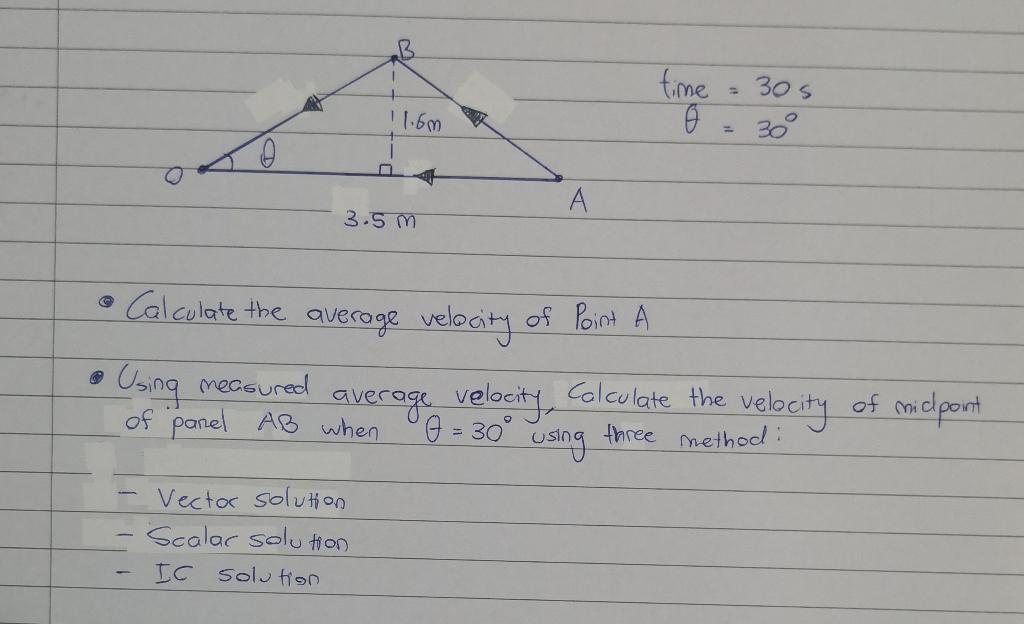 B
time = 30 s
θ = 30°
1.6m
θ
O
A
3.5 m
• Calculate the average velocity of Point A
• Using measured average velocity, Calculate the velocity of midpoint
of panel AB when θ = 30° using three method:
- Vector solution
- Scalar solution
- IC solution